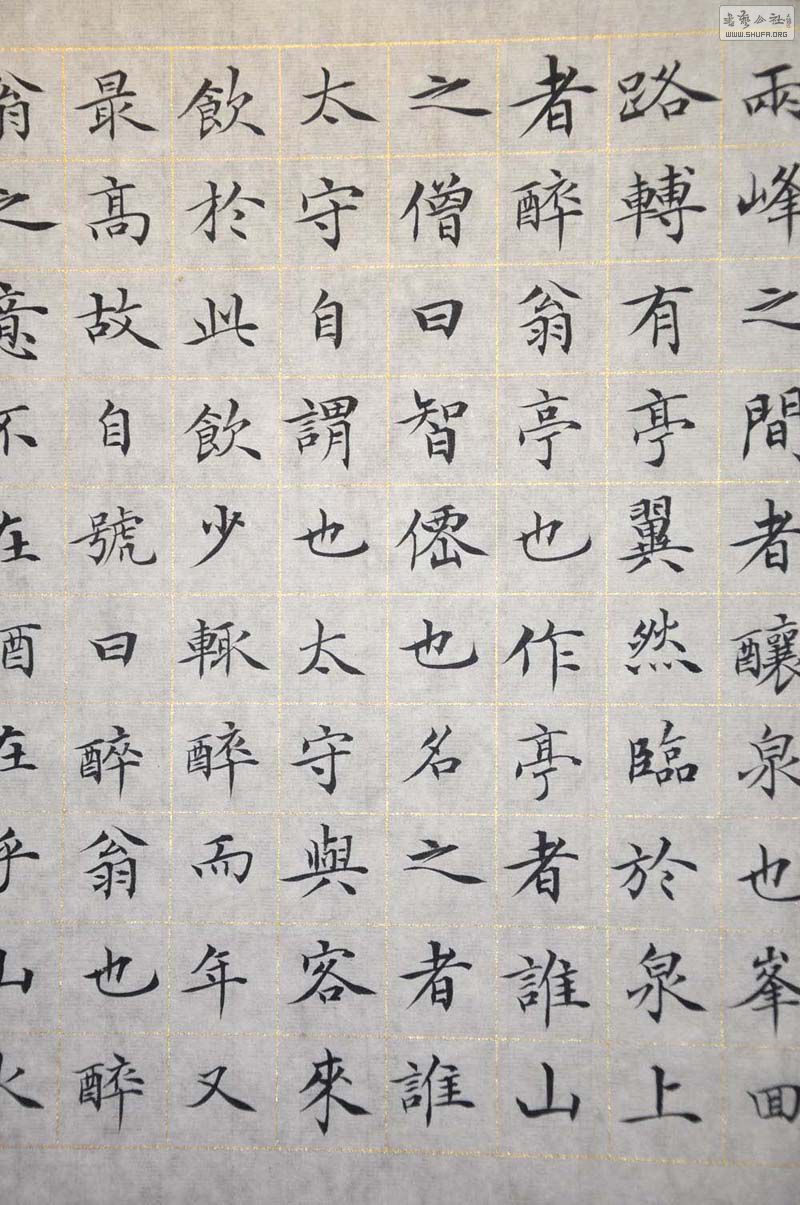 兩峰之間者釀泉也峯回
路轉有亭翼然臨於泉上
者醉翁亭也作亭者誰山
之僧曰智僊也名之者誰
太守自謂也太守與客來
飲於此飲少輙醉而年又
最髙故自號曰醉翁也醉
翁之意不在酒在乎山水
書藝公社
WWW.SHUFA.ORG